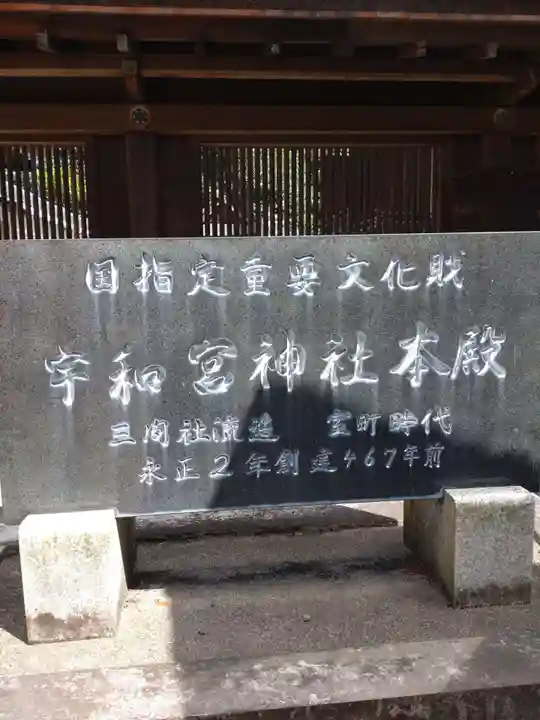 国指定重要文化財
宇和宮神社本殿
三間社流造 室町時代
永正2年創建467年前